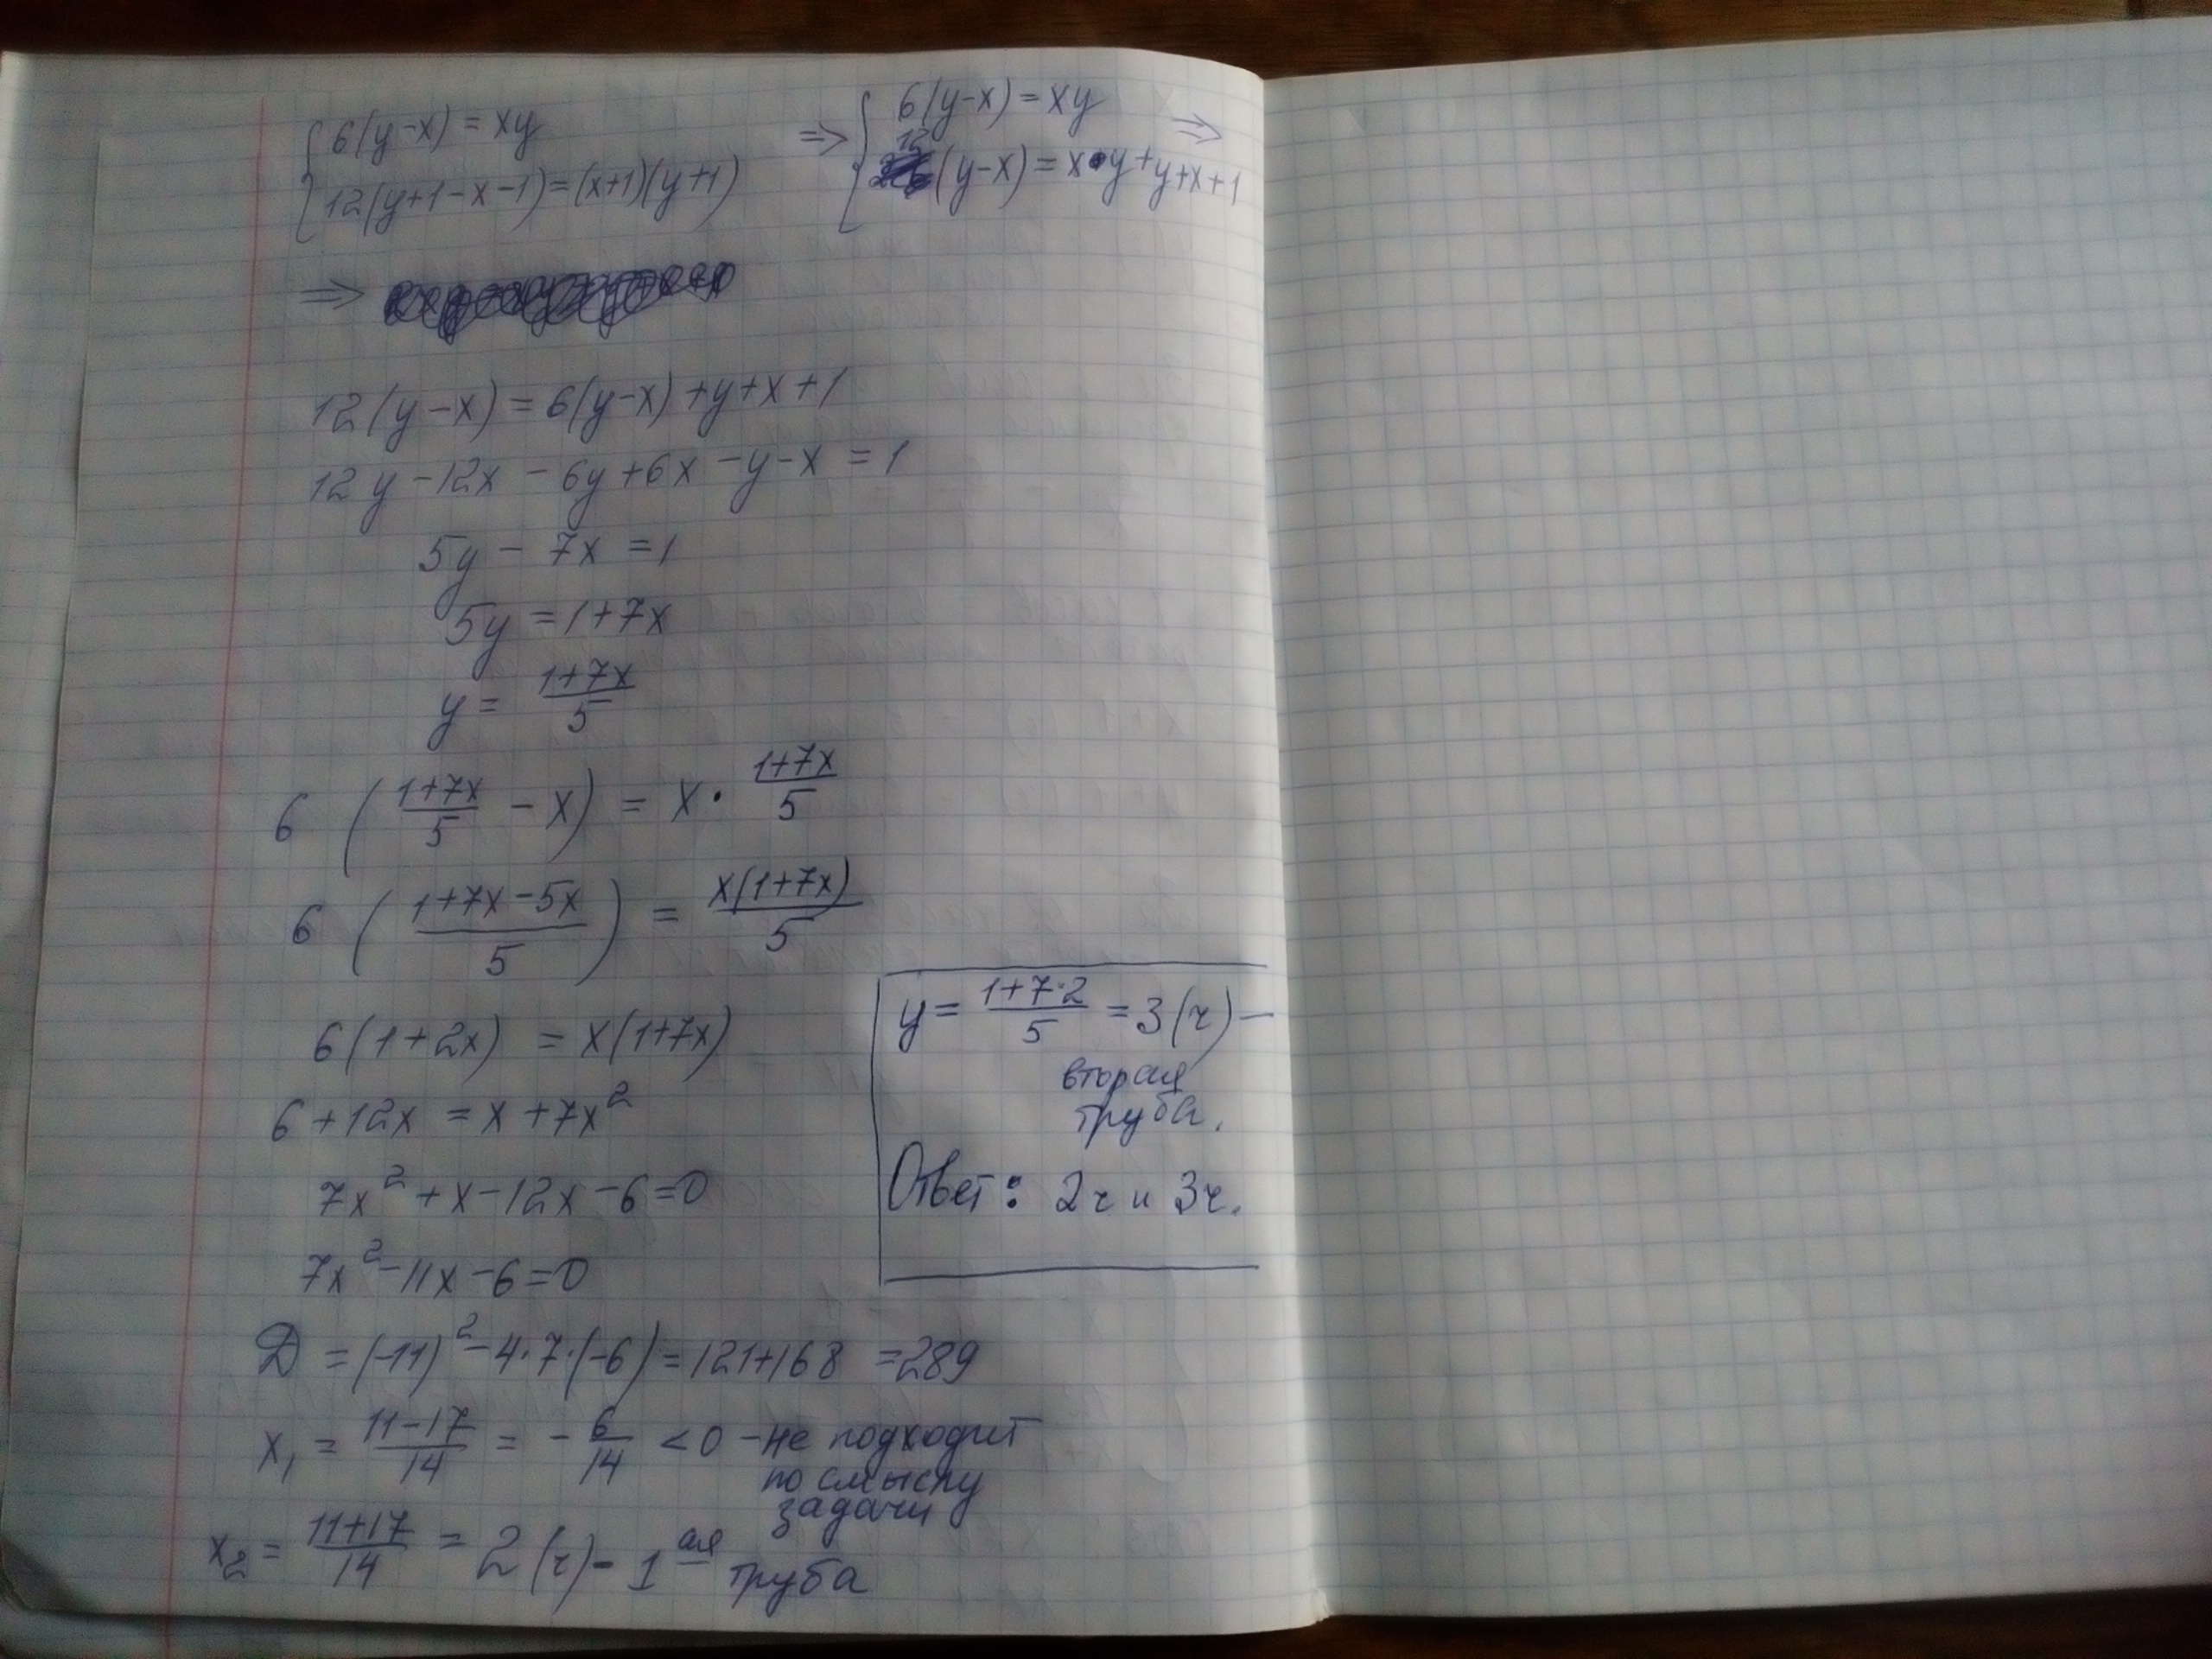 { 6(y-x) = xy
12(y+1-x-1)=(x+1)(y+1)
=> { 6(y-x) = xy =>
12(y-x) = x•y+y+x+1
=>
12(y-x) = 6(y-x)+y+x+1
12y-12x-6y+6x-y-x = 1
5y - 7x = 1
5y = 1+7x
y = (1+7x)/5
6 ((1+7x)/5 - x) = x · (1+7x)/5
6 ((1+7x-5x)/5) = x(1+7x)/5
6(1+2x) = x(1+7x)
6+12x = x+7x²
7x²+x-12x-6=0
7x²-11x-6=0
D = (-11)²-4·7·(-6)=121+168 =289
x₁ = (11-17)/14 = -6/14 < 0 - не подходит
по смыслу
задачи
x₂ = (11+17)/14 = 2 (ч) - 1 ая труба
y = (1+7·2)/5 = 3 (ч) —
вторая
труба.
Ответ: 2ч и 3ч.